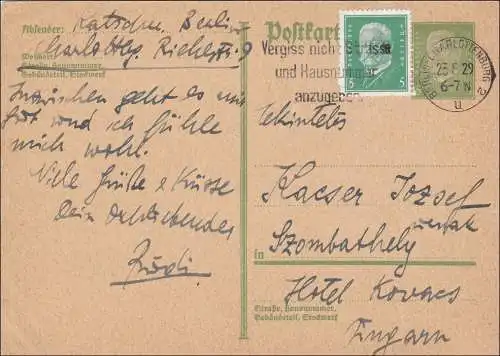 Absender: Katscher, Berlin
Charlottbg, Riehlstr. 9
Wohnort
Straße, Hausnummer,
Gebäudeteil, Stockwerk
Inzwischen geht es mir
gut und ich fühle
mich wohl.
Viele Grüße & Küsse
Dein
Rudi
Postkarte
Vergiss nicht Strasse
und Hausnummer
anzugeben
DEUTSCHES REICH
5 5
BERLIN-CHARLOTTENBURG 2
25.6.29
6-7 N
u
Tekintetes
Kacser Jozsef
urnak
in Szombathely
Hotel Kovacs
Straße, Hausnummer,
Gebäudeteil, Stockwerk
Ungarn